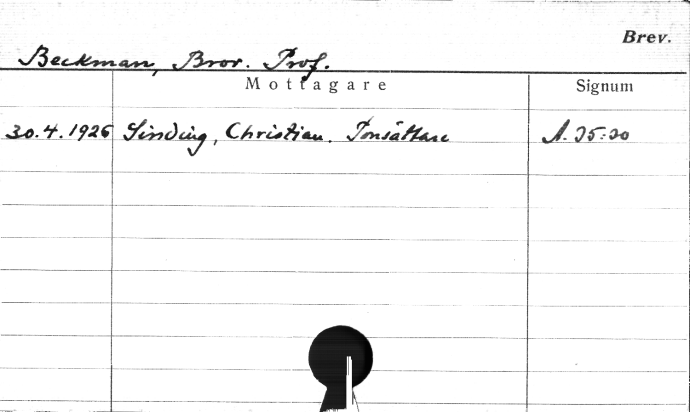 Brev.
Beckman, Bror. Prof.
Mottagare Signum
30.4.1926 Sinding, Christian. Tonsättare